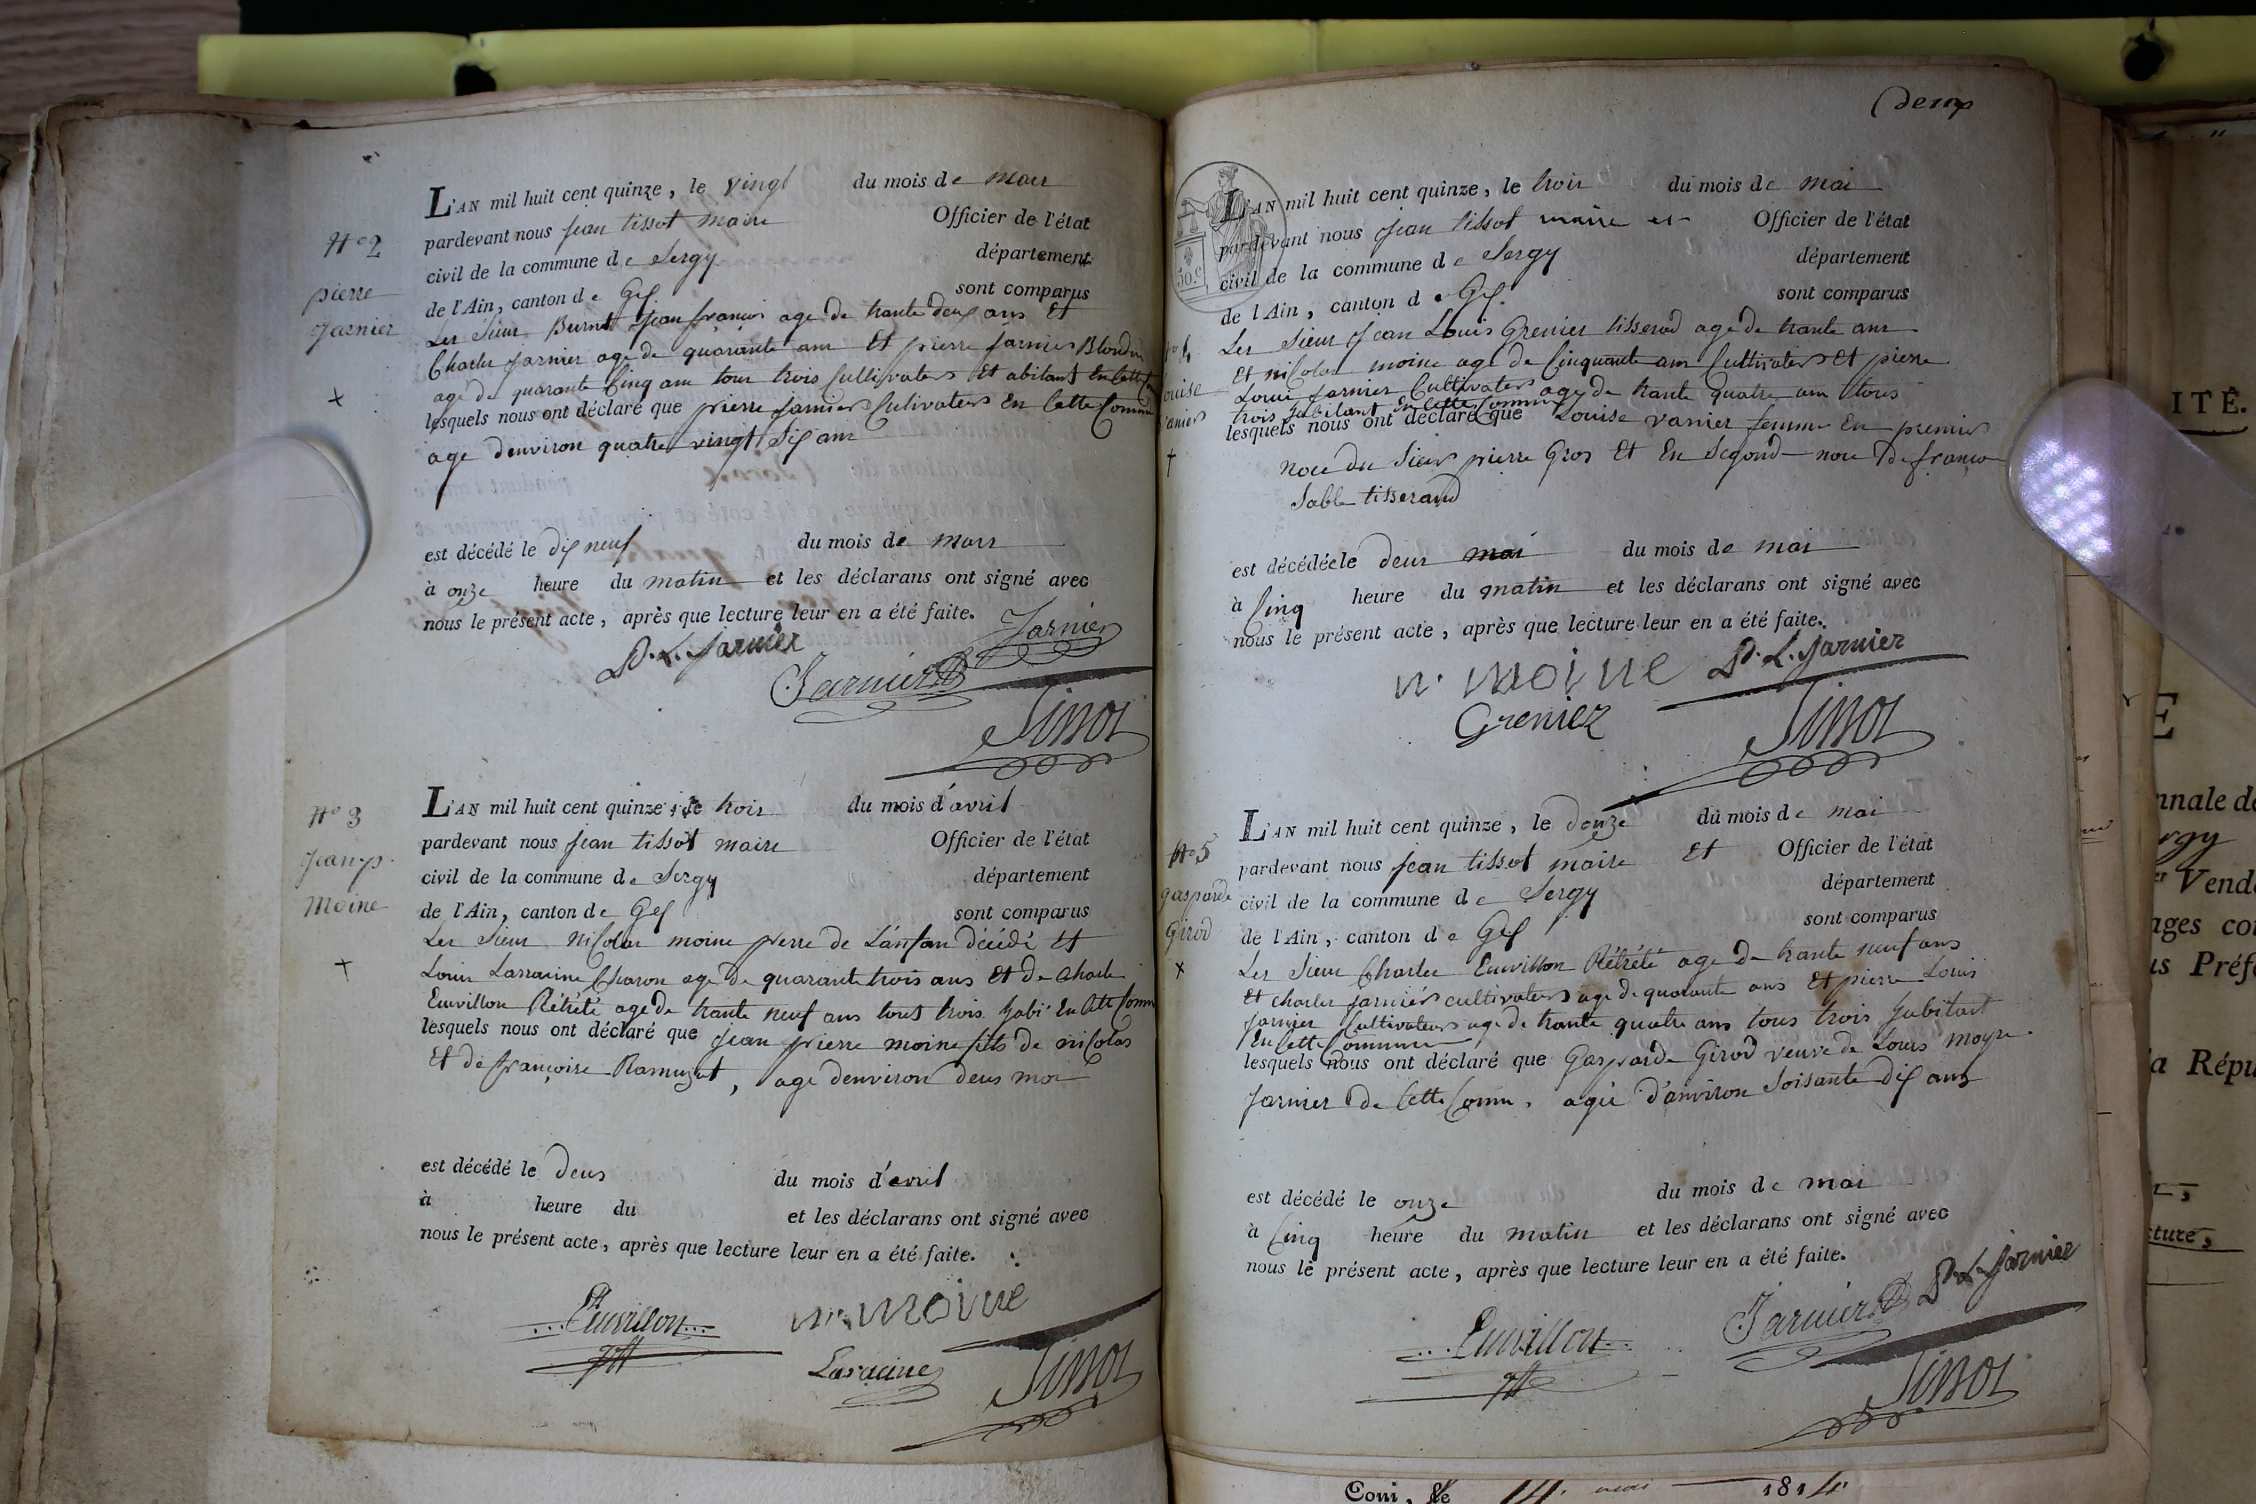 N° 2
pierre
Jarnier
L'AN mil huit cent quinze, le vingt du mois de mars
pardevant nous jean tissot maire Officier de l'état
civil de la commune de Sergy département
de l'Ain, canton de Gex sont comparus
Les Sieur Burnet jean françois age de trante deux ans Et
Charles Jarnier age de quarante ans Et pierre Jarnier Blondin
age de quarante Cinq ans tous trois Cultivateurs Et abitant En Cette
lesquels nous ont déclaré que pierre Jarnier Cultivateurs En Cette Commun
age denviron quatre vingt Six ans
est décédé le dix neuf du mois de mars
à onze heure du matin et les déclarans ont signé avec
nous le présent acte, après que lecture leur en a été faite.
P. L. Jarnier Jarnier
Jarnier
Tissot
N° 3
Jean p.
Moine
L'AN mil huit cent quinze, le trois du mois d'avril
pardevant nous jean tissot maire Officier de l'état
civil de la commune de Sergy département
de l'Ain, canton de Gex sont comparus
Les Sieur Nicolas moine perre de L'anfan décédé Et
Louis Larracine Charon age de quarante trois ans Et de Charle
Emvillon Rétrété age de trante neuf ans tous trois habi. En Cete Comm
lesquels nous ont déclaré que jean pierre moine fils de nicolas
Et de françoise Ramuzat, age denviron deux moi
est décédé le deux du mois d'avril
à heure du et les déclarans ont signé avec
nous le présent acte, après que lecture leur en a été faite.
Emvillon n. moine
Laracine
Tissot
deux
50 c
ouise
vanier
L'AN mil huit cent quinze, le trois du mois de mai
pardevant nous jean tissot maire et Officier de l'état
civil de la commune de Sergy département
de l'Ain, canton de Gex sont comparus
Les Sieur Jean Louis Grenier tisserod age de trante ans
Et nicolas moine age de Cinquante ans Cultivateurs Et pierre
Louis Jarnier Cultivateurs age de trante quatre ans tous
trois habitant En Cette Commun
lesquels nous ont déclaré que Louise vanier femme En premier
noce du Sieur pierre Gros Et En Segond noce de françoi
Sable tisserand
est décédée le deux mai du mois de mai
à Cinq heure du matin et les déclarans ont signé avec
nous le présent acte, après que lecture leur en a été faite.
n. moine P. L. Jarnier
Grenier
Tissot
N° 5
gasparde
Girod
L'AN mil huit cent quinze, le douze du mois de mai
pardevant nous jean tissot maire Et Officier de l'état
civil de la commune de Sergy département
de l'Ain, canton de Gex sont comparus
Les Sieur Charles Emvillon Rétrété age de trante neuf ans
Et charles Jarnier cultivateurs age de quarante ans Et pierre Louis
Jarnier Cultivateurs age de trante quatre ans tous trois habitant
En Cette Commune
lesquels nous ont déclaré que Gasparde Girod veuve de Louis moyse
Jarnier de Cette Comm. agée d'anviron Soisante dix ans
est décédé le onze du mois de mai
à Cinq heure du matin et les déclarans ont signé avec
nous le présent acte, après que lecture leur en a été faite.
Emvillon Jarnier P. L. Jarnier
Tissot
Coni, le 14 mai 1814
ITÉ.
E
nnale de
rgy
Vend
ages co
us Préf
a Répu
cture,